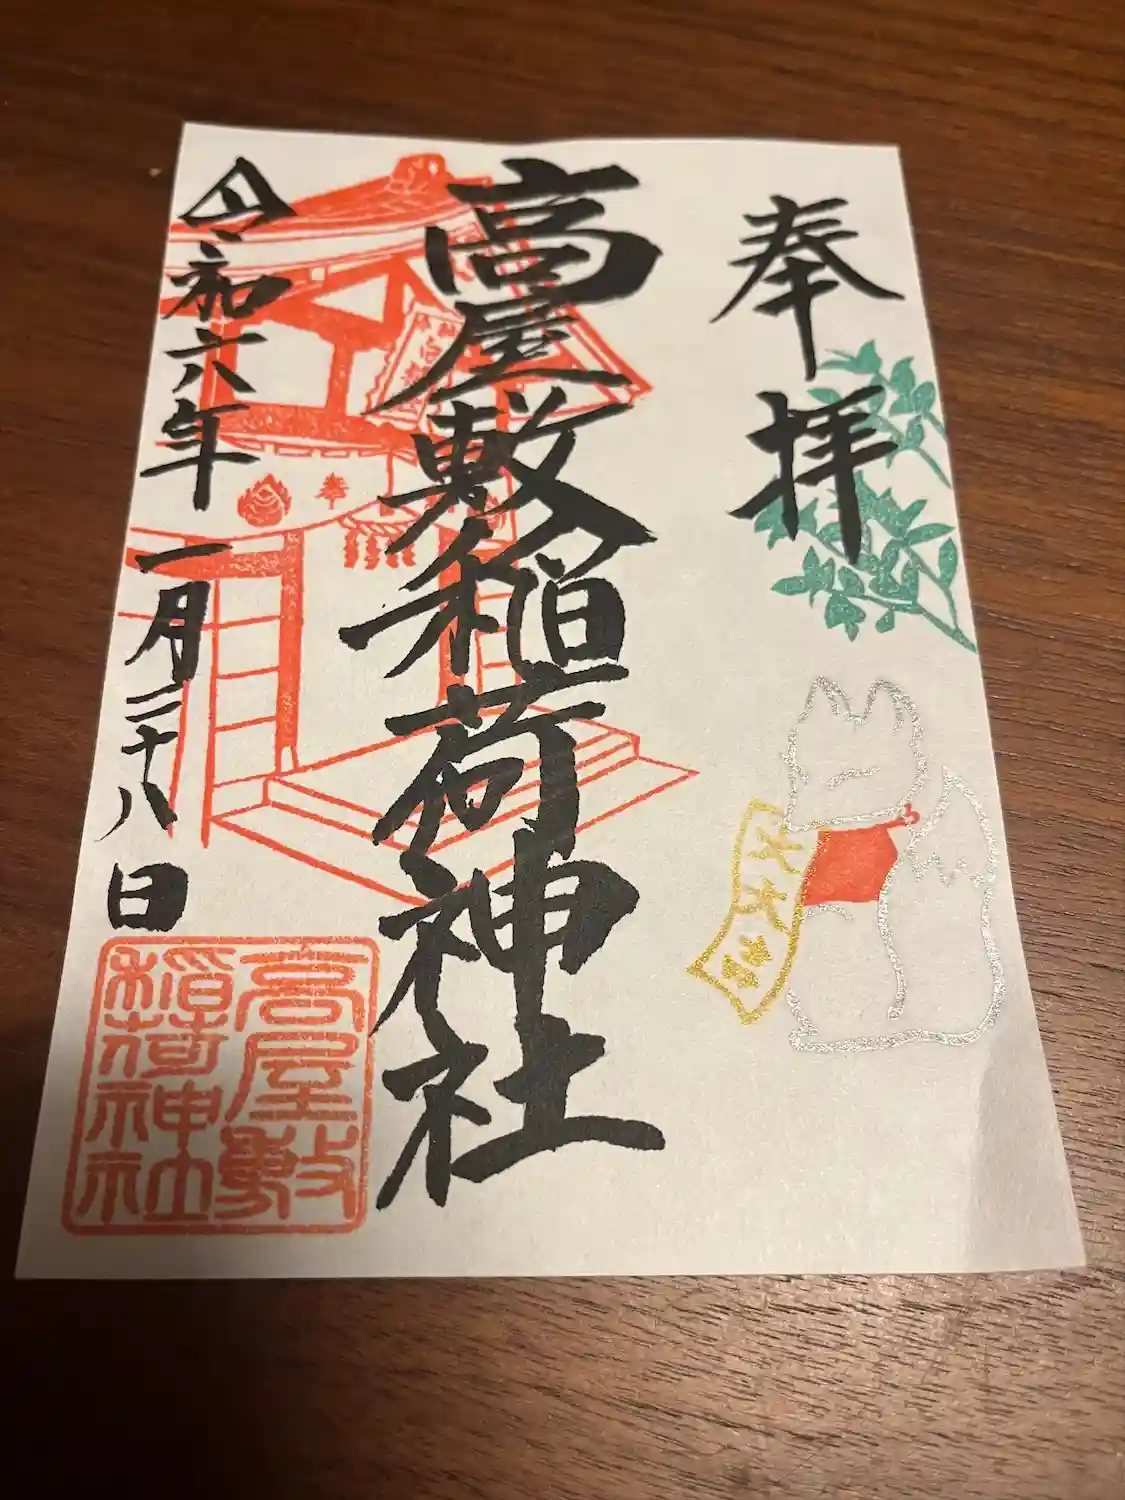 奉拝
高屋敷稲荷神社
令和六年一月二十八日
高屋敷
稲荷神社
奉
大大吉